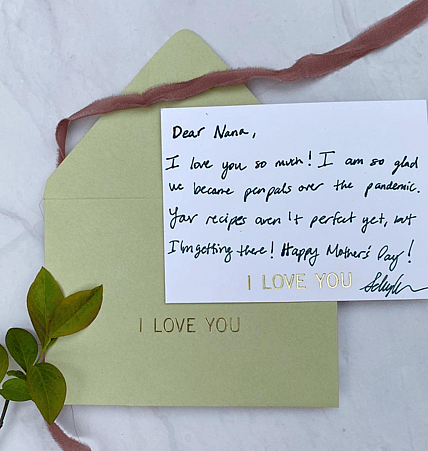 Dear Nana,
I love you so much! I am so glad
we became penpals over the pandemic.
Your recipes aren't perfect yet, but
I'm getting there! Happy Mother's Day!
I LOVE YOU
I LOVE YOU